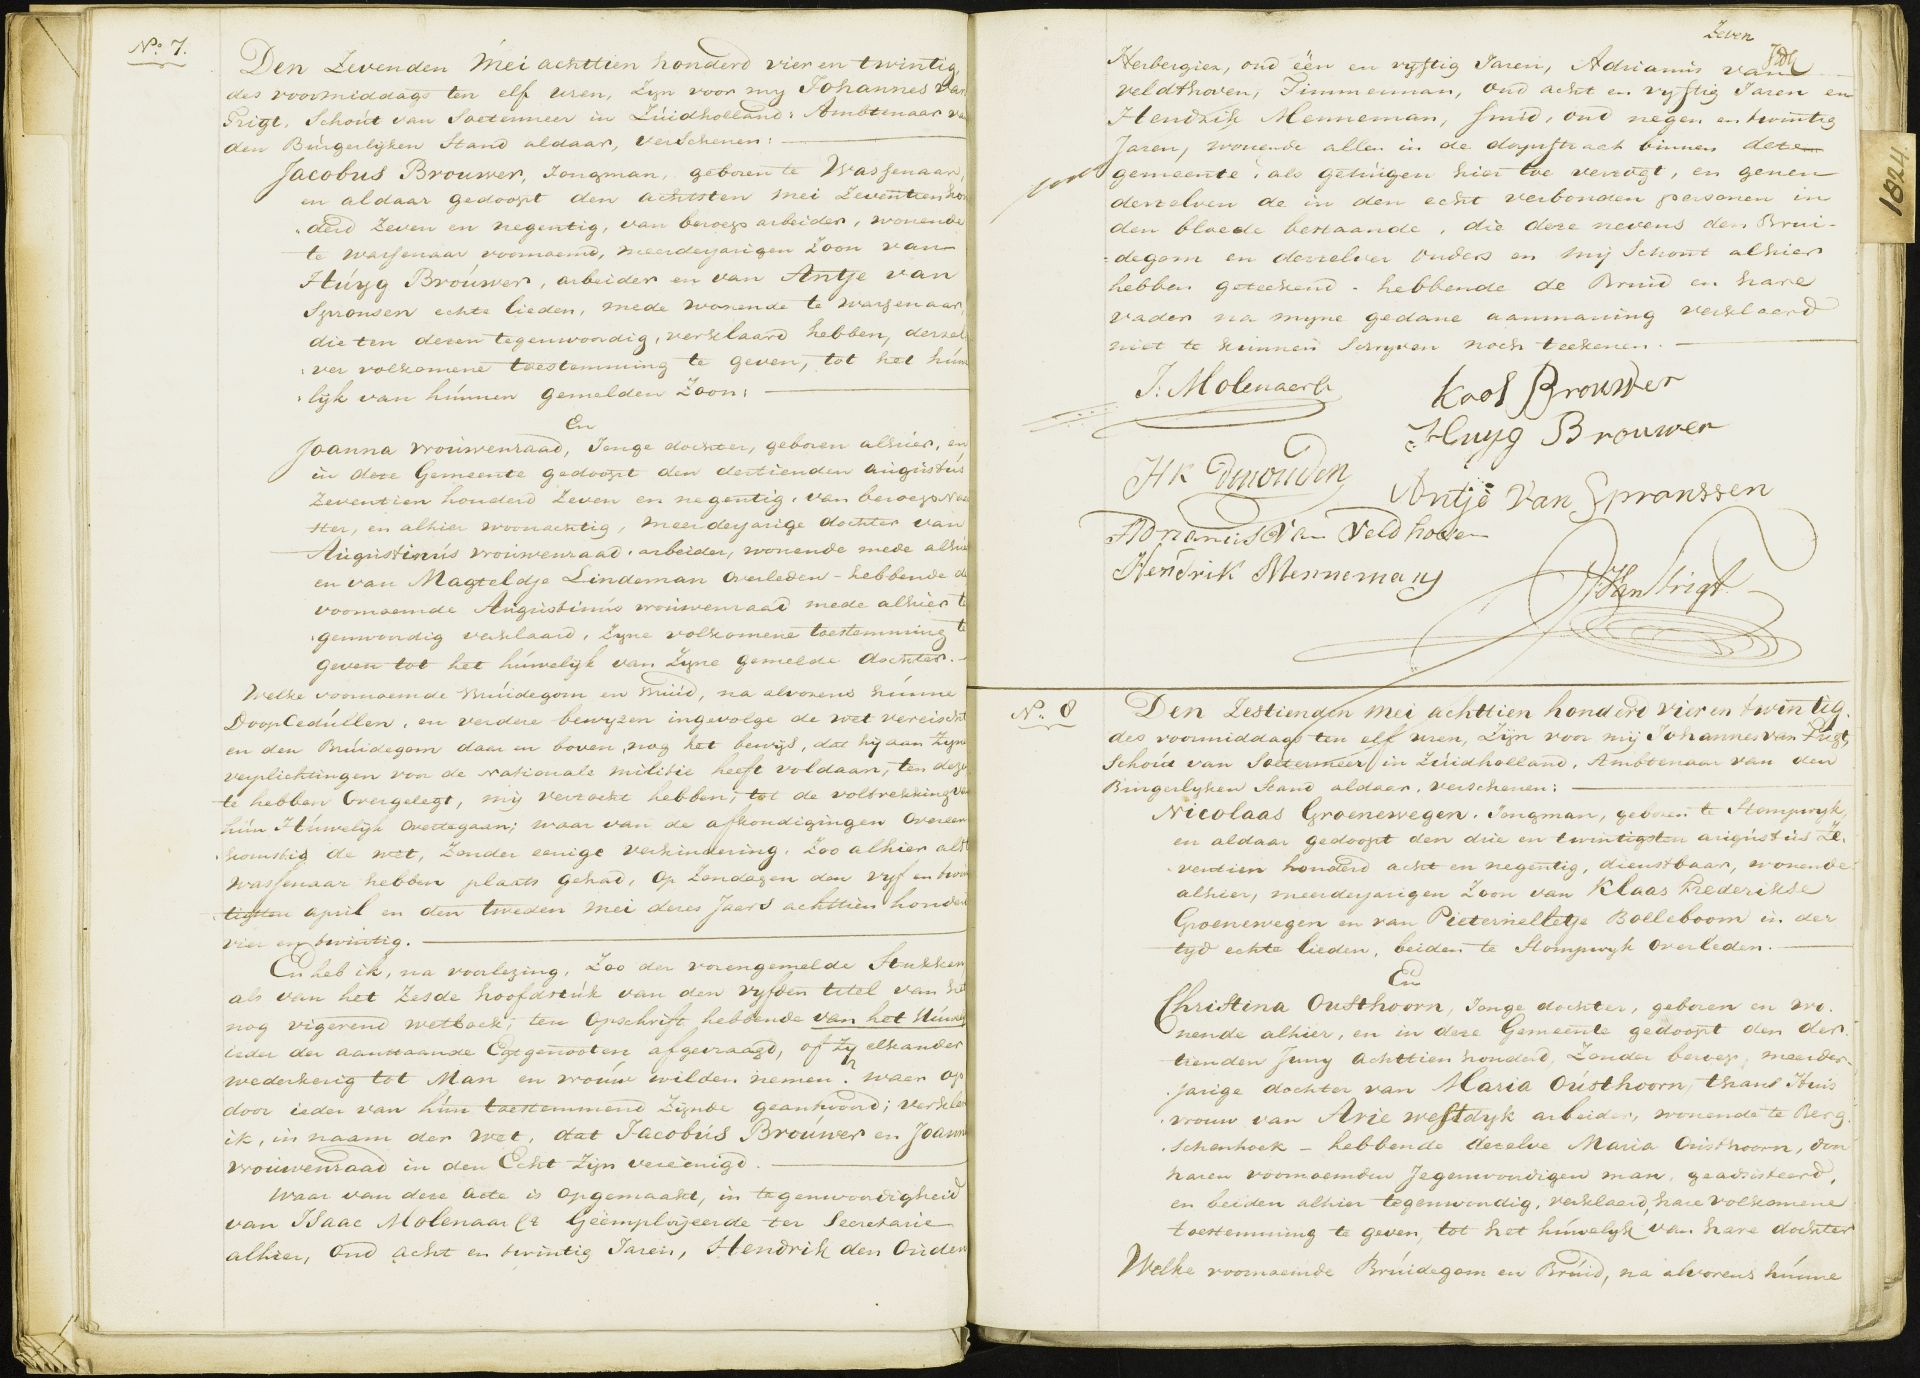 No. 7.
Den Zevenden Mei achttien honderd vier en twintig,
des voormiddags ten elf uren, Zyn voor my Johannes van
Frigt, Schout van Soetermeer in Zúidholland, Ambtenaar van
den Búrgerlyken Stand aldaar, verschenen:
Jacobus Brouwer, Jongman, geboren te Wassenaar,
en aldaar gedoopt den achtsten Mei Zeventien hon
derd Zeven en negentig, van beroep arbeider, wonende
te Wassenaar voornoemd, meerderjarigen Zoon van
Húyg Broúwer, arbeider en van Antje van
Spronsen echte lieden, mede wonende te Wassenaar,
die ten dezen tegenwoordig, verklaard hebben, derzel
ver volkomene toestemming te geven, tot het húw
lijk van húnnen gemelden Zoon:
En
Joanna Vroúwenraad, Jonge dochter, geboren alhier, en
in deze Gemeente gedoopt den dertienden aúgústús
Zeventien honderd Zeven en negentig, van beroep Naai
ster, en alhier woonachtig, meerderjarige dochter van
Aúgústinús Vroúwenraad, arbeider, wonende mede alhier
en van Magteldje Lindeman Overleden - hebbende de
voornoemde Aúgústinús Vroúwenraad mede alhier te
genwoordig verklaard, Zyne volkomene toestemming te
geven tot het húwelyk van Zyne gemelde dochter.
Welke voornoemde Brúidegom en Brúid, na alvorens húnne
DoopCedúllen, en verdere bewyzen ingevolge de wet vereischt
en den Brúidegom daar en boven, nog het bewijs, dat hy aan Zyne
verplichtingen voor de Nationale Militie heeft voldaan, ten deze
te hebben Overgelegt, mij verzocht hebben, tot de voltrekking van
hún Húwelijk Overtegaan; waar van de afkondigingen Overeen
komstig de wet, Zonder eenige verhindering, Zoo alhier als
Wassenaar hebben plaats gehad, Op Zondagen den vyf en twin
tigsten april en den tweden Mei dezes Jaars achttien honderd
vier en twintig.
En heb ik, na voorlezing, Zoo der vorengemelde Stukken
als van het Zesde hoofdstúk van den vyfden titel van het
nog vigerend wetboek; ten Opschrift hebbende van het Húwe
ieder der aanstaande Egtgenooten afgevraagd, of Zy elkander
wederkerig tot Man en vroúw wilden nemen? waar op
door ieder van hún toestemmend Zijnde geantwoord; verklaar
ik, in naam der wet, dat Jacobús Broúwer en Joanna
Vroúwenraad in den Echt Zijn vereenigd.
Waar van deze acte is Opgemaakt, in tegenwoordigheid
van Isaac Molenaar Geëmploijeerde ter Secretarie
alhier, Oud acht en twintig Jaren, Hendrik den Ouden
Zeven
Herbergier, oud één en vyftig Jaren, Adrianus van
Veldthoven, Timmerman, Oud acht en vyftig Jaren en
Hendrik Menneman, Smid, Oud negen en twintig
Jaren, wonende allen in de dorpstraat binnen deze
gemeente, als getúigen hier toe verzogt, en genen
derzelven de in den echt verbonden personen in
den bloede bestaande, die deze nevens den Brui-
degom en deszelver Ouders en Mij Schout alhier
hebben geteekend - hebbende de Bruid en hare
vader na myne gedane aanmaning verklaard
niet te kúnnen Schryven noch teekenen.
I: Molenaar
Koos Brouwer
Huyg Brouwer
HK Denouden
Antje Van Spronssen
Adrianus Van Veldhoven
Hendrik Menneman
JVan Frigt
No. 8
Den Zestienden Mei achttien honderd vier en twintig.
des voormiddags ten elf uren, Zijn voor mij Johannes van Frigt,
Schoút van Soetermeer in Zúidholland, Ambtenaar van den
Búrgerlyken Stand aldaar, verschenen:
Nicolaas Groenewegen, Jongman, geboren te Stompwyk,
en aldaar gedoopt den drie en twintigsten aúgústús Ze-
ventien honderd acht en negentig, dienstbaar, wonende
alhier, meerderjarigen Zoon van Klaas Frederikse
Groenewegen en van Pieternelletje Bolleboom in der
tyd echte lieden, beiden te Stompwyk Overleden.
En
Christina Ousthoorn, Jonge dochter, geboren en wo-
nende alhier, en in deze Gemeente gedoopt den der-
tienden Juny achttien honderd, Zonder beroep, meerder-
jarige dochter van Maria Oústhoorn, thans Huis
vrouw van Arie Westdyk arbeider, wonende te Berg
schenhoek - hebbende dezelve Maria Ousthoorn, door
haren voornoemden Jegenwoordigen man, geadsisteerd,
en beiden alhier tegenwoordig, verklaard, hare volkomene
toestemming te geven, tot het húwelyk van hare dochter
Welke voornoemde Brúidegom en Brúid, na alvorens húnne
1824